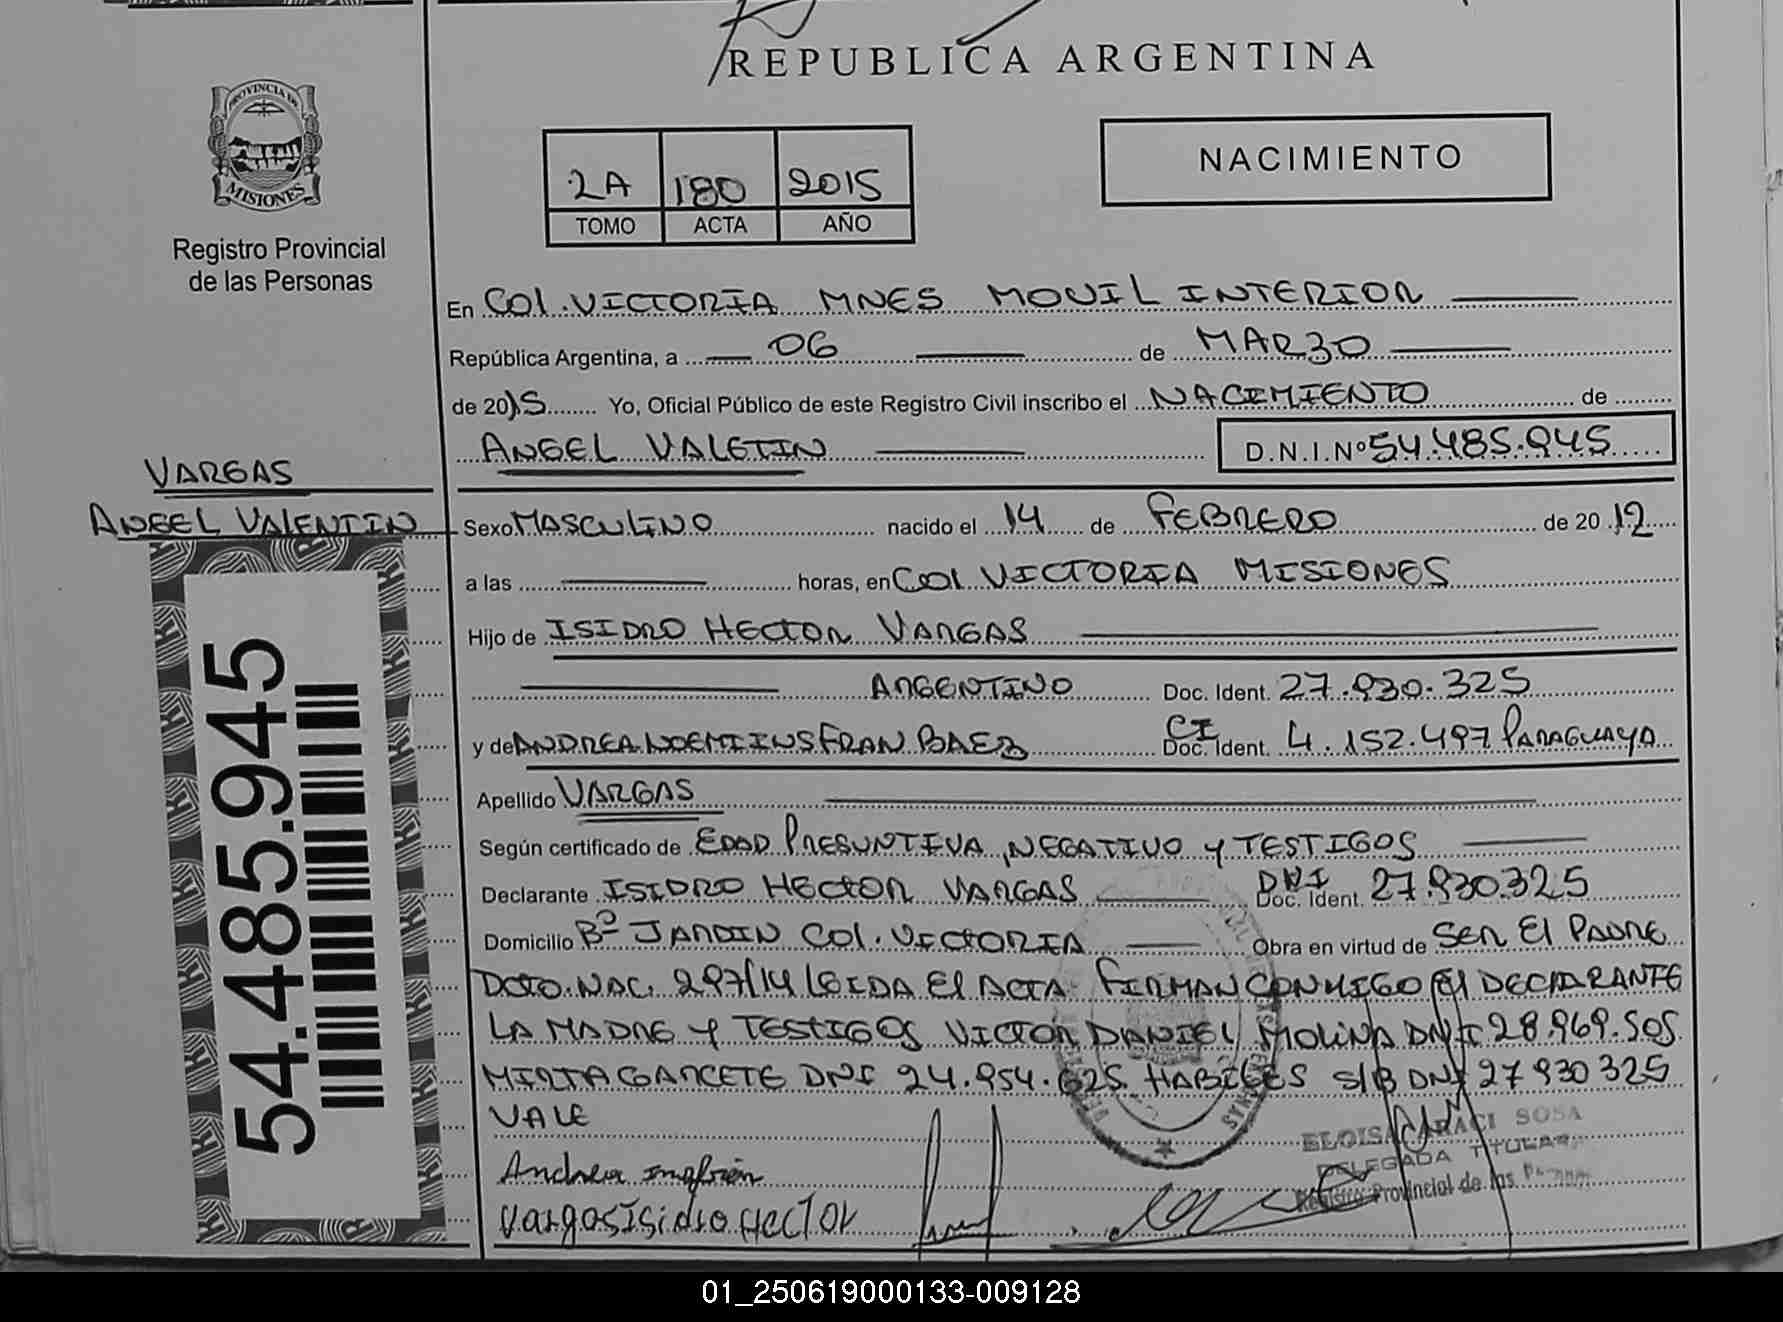 REPUBLICA ARGENTINA
PROVINCIA DE
MISIONES
Registro Provincial
de las Personas
NACIMIENTO
2A 180 2015
TOMO ACTA AÑO
En COL. VICTORIA MNES MOVIL INTERIOR
República Argentina, a 06 de MARZO
de 2015 Yo, Oficial Público de este Registro Civil inscribo el NACIMIENTO de
ANGEL VALETIN D.N.I.Nº 54.485.945
VARGAS
ANGEL VALENTIN
Sexo MASCULINO nacido el 14 de FEBRERO de 2012
a las horas, en COL VICTORIA MISIONES
Hijo de ISIDRO HECTOR VARGAS
ARGENTINO Doc. Ident. 27.930.325
y de ANDREA NOEMI INSFRAN BAEZ CI Doc. Ident. 4.152.497 PARAGUAYA
Apellido VARGAS
Según certificado de EDAD PRESUNTIVA, NEGATIVO Y TESTIGOS
Declarante ISIDRO HECTOR VARGAS DNI Doc. Ident. 27.930.325
Domicilio Bº JARDIN COL. VICTORIA Obra en virtud de SER EL PADRE
DCTO. NAC. 297/14 LEIDA EL ACTA FIRMAN CONMIGO EL DECLARANTE
LA MADRE Y TESTIGOS VICTOR DANIEL MOLINA DNI 28.969.505
MIRTA GARCETE DNI 24.954.625 HABILES S/B DNI 27930325
VALE
54.485.945
Andrea Insfrán
Vargas Isidro Hector
ELOISA CARACI SOSA
DELEGADA TITULAR
Registro Provincial de las
01_250619000133-009128